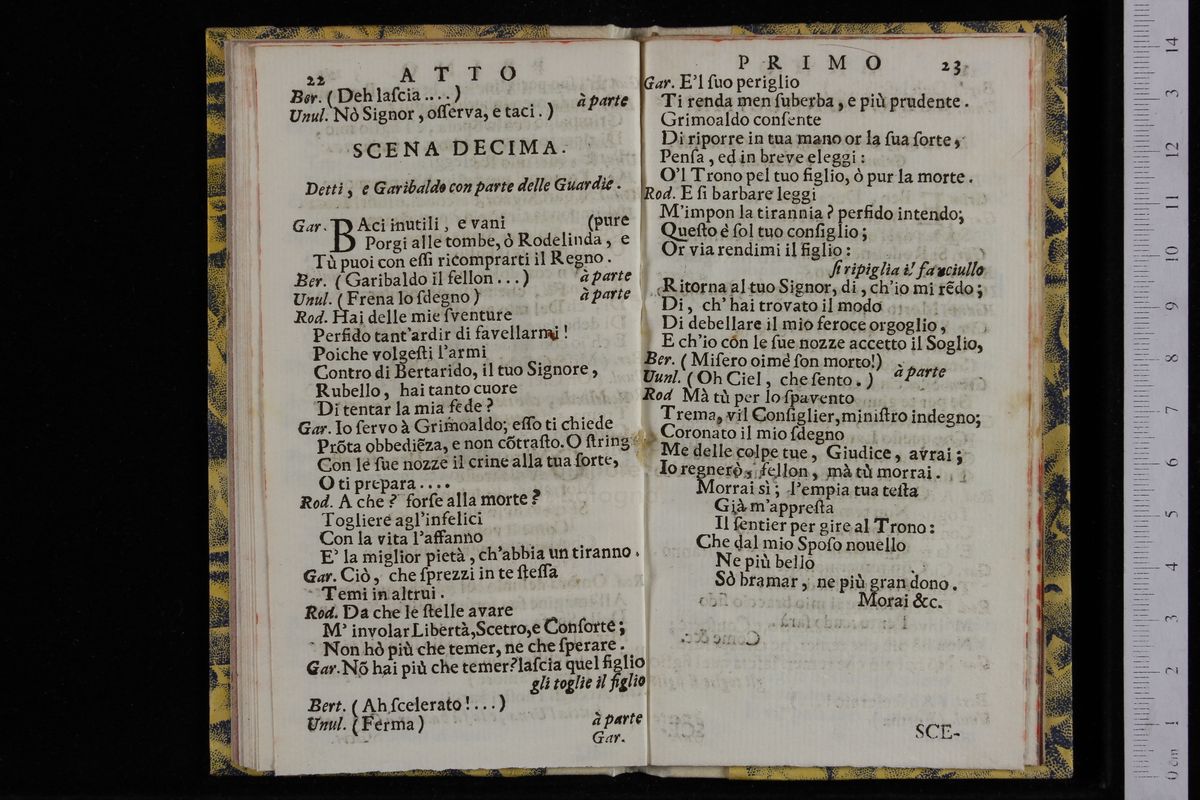 22 ATTO
Ber. (Deh laſcia....)
à parte
Unul. Nò Signor, oſſerva, e taci.)
SCENA DECIMA.
Detti, e Garibaldo con parte delle Guardie.
Gar. BAci inutili, e vani (pure
Porgi alle tombe, ò Rodelinda, e
Tù puoi con eſſi ricomprarti il Regno.
Ber. (Garibaldo il fellon...) à parte
Unul. (Frena lo ſdegno) à parte
Rod. Hai delle mie ſventure
Perfido tant'ardir di favellarmi!
Poiche volgeſti l'armi
Contro di Bertarido, il tuo Signore,
Rubello, hai tanto cuore
Di tentar la mia fede?
Gar. Io ſervo à Grimoaldo; eſſo ti chiede
Prõta obbediẽza, e non cõtraſto. O ſtring
Con le ſue nozze il crine alla tua ſorte,
O ti prepara....
Rod. A che? forſe alla morte?
Togliere agl'infelici
Con la vita l'affanno
E' la miglior pietà, ch'abbia un tiranno.
Gar. Ciò, che ſprezzi in te ſteſſa
Temi in altrui.
Rod. Da che le ſtelle avare
M' involar Libertà, Scetro, e Conſorte;
Non hò più che temer, ne che ſperare.
Gar. Nõ hai più che temer? laſcia quel figlio
gli toglie il figlio
Bert. (Ah ſcelerato!...)
Unul. (Ferma) à parte
Gar.
PRIMO 23
Gar. E'l ſuo periglio
Ti renda men ſuberba, e più prudente.
Grimoaldo conſente
Di riporre in tua mano or la ſua ſorte,
Penſa, ed in breve eleggi:
O'l Trono pel tuo figlio, ò pur la morte.
Rod. E ſi barbare leggi
M'impon la tirannia? perfido intendo;
Queſto è ſol tuo conſiglio;
Or via rendimi il figlio:
ſi ripiglia il fanciullo
Ritorna al tuo Signor, di, ch'io mi rẽdo;
Di, ch' hai trovato il modo
Di debellare il mio feroce orgoglio,
E ch'io con le ſue nozze accetto il Soglio,
Ber. (Miſero oimè ſon morto!)
à parte
Uunl. (Oh Ciel, che ſento.)
Rod Mà tù per lo ſpavento
Trema, vil Conſiglier, miniſtro indegno;
Coronato il mio ſdegno
Me delle colpe tue, Giudice, avrai;
Io regnerò, fellon, mà tù morrai.
Morrai sì; l'empia tua teſta
Già m'appreſta
Il ſentier per gire al Trono:
Che dal mio Spoſo nouello
Ne più bello
Sò bramar, ne più gran dono.
Morai &c.
SCE-
0 cm 1 2 3 4 5 6 7 8 9 10 11 12 13 14